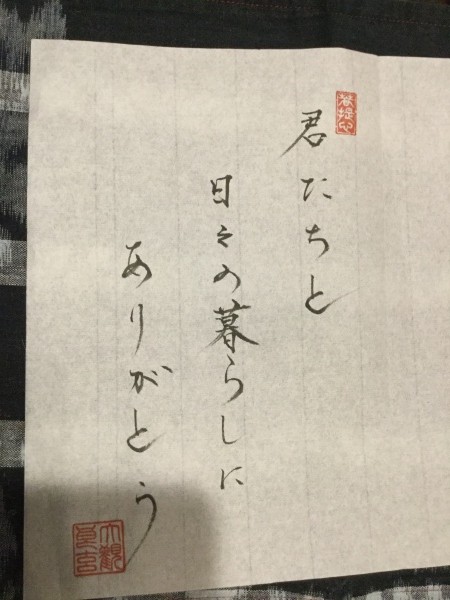 君たちと
日々の暮らしに
ありがとう